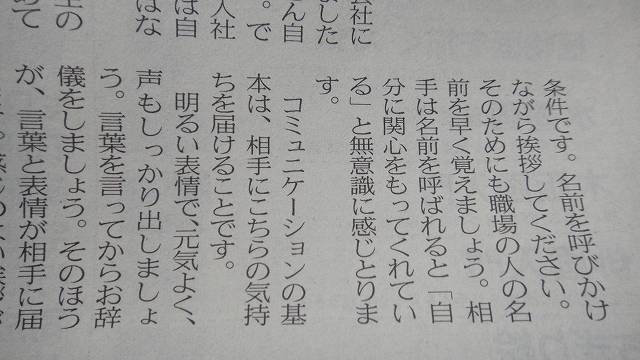 会社に
ました
さん自
。で
入社
は自
はな
条件です。名前を呼びかけ
ながら挨拶してください。
そのためにも職場の人の名
前を早く覚えましょう。相
手は名前を呼ばれると「自
分に関心をもってくれてい
る」と無意識に感じとりま
す。
コミュニケーションの基
本は、相手にこちらの気持
ちを届けることです。
明るい表情で、元気よく、
声もしっかり出しましょ
う。言葉を言ってからお辞
儀をしましょう。そのほう
が、言葉と表情が相手に届